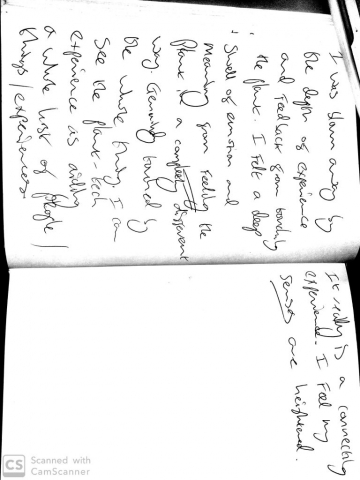 I was blown away by
the depth of experience
and feedback from touching
the plant. I felt a deep
swell of emotion and
meaning from feeling the
plant in a completely different
way. Genuinely touched by
the whole thing. I can
see the plant-tech
experience as aiding
a whole host of people/
things/experiences.
It really is a connecting
experience. I feel my
senses are heightened.
CS Scanned with
CamScanner